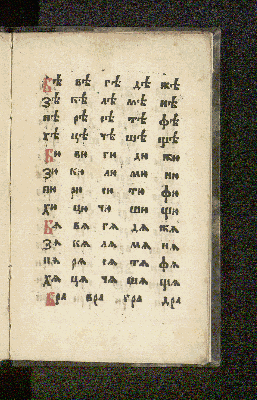 Бѣ вѣ гѣ дѣ жѣ
зѣ кѣ лѣ мѣ нѣ
пѣ рѣ сѣ тѣ фѣ
хѣ цѣ чѣ шѣ щѣ
Бю вю гю дю жю
зю кю лю мю ню
пю рю сю тю фю
хю цю чю шю щю
Бѧ вѧ гѧ дѧ жѧ
зѧ кѧ лѧ мѧ нѧ
пѧ рѧ сѧ тѧ фѧ
хѧ цѧ чѧ шѧ щѧ
Бра вра гра дра